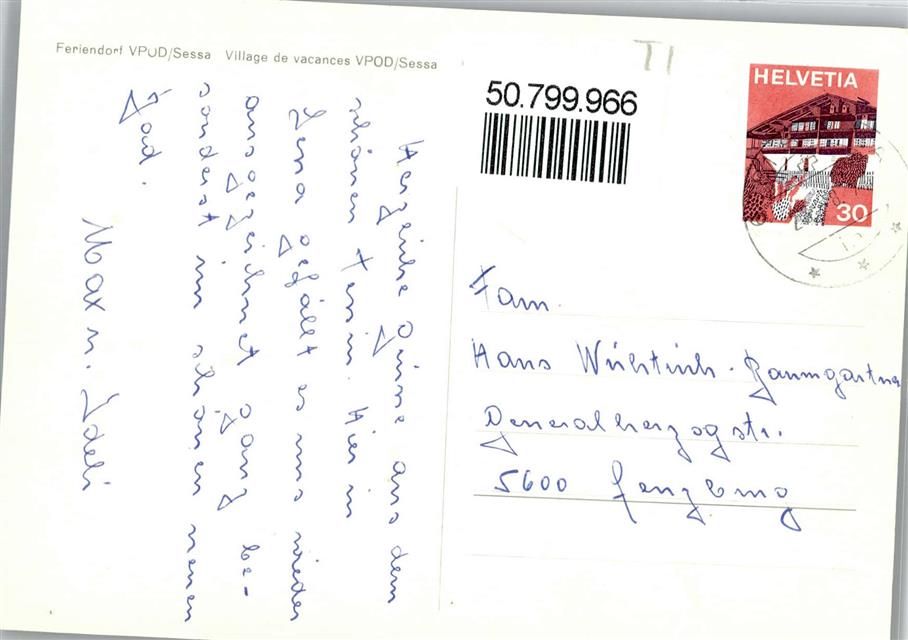 Feriendorf VPOD/Sessa Village de vacances VPOD/Sessa
TI
50.799.966
HELVETIA
30
Herzliche Grüsse aus dem
schönen Tessin. Hier in
Sessa gefällt es uns wieder
ausgezeichnet ganz be-
sonders im schönen neuen
Bad.
Max u. Edeli
Fam.
Hans Baumgartner
Generalherzogstr.
5600 Lenzburg